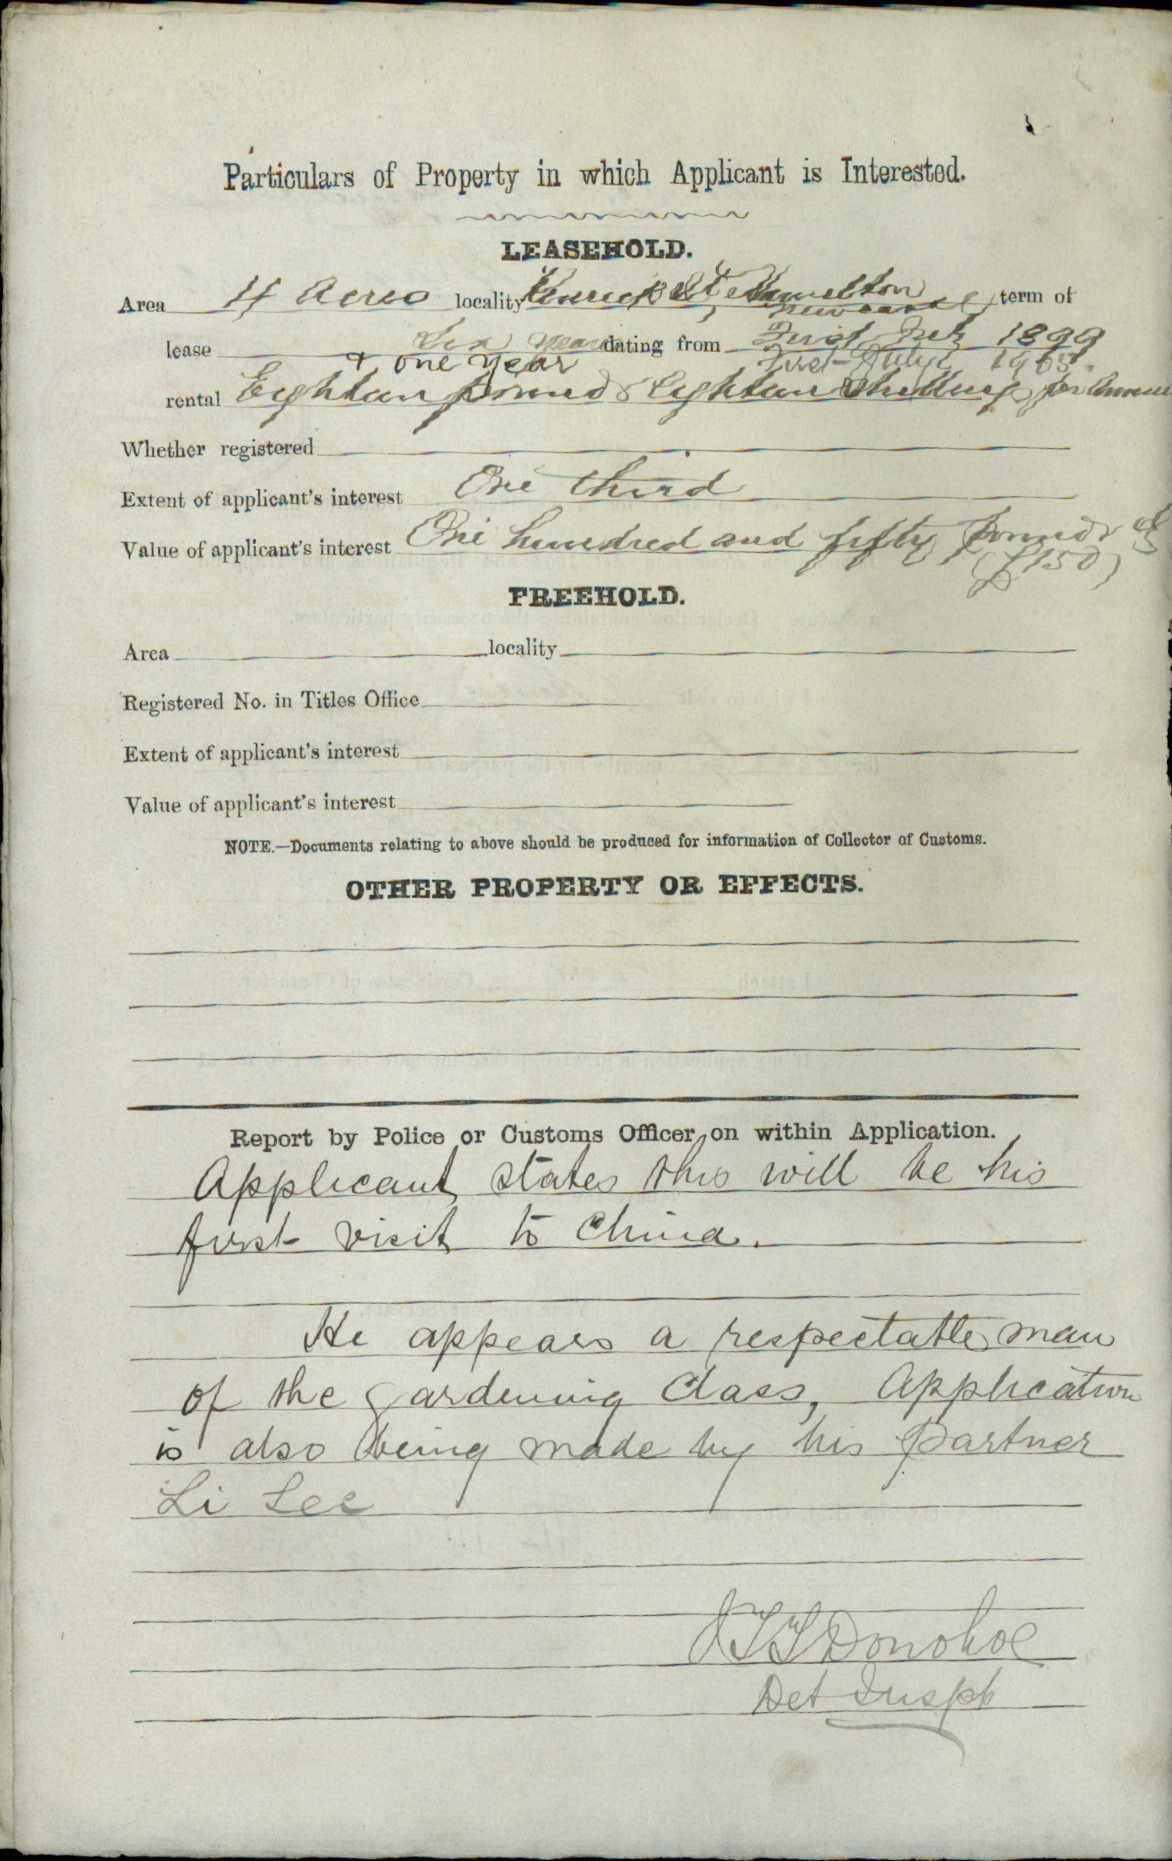 Particulars of Property in which Applicant is Interested.
LEASEHOLD.
Area 4 Acres locality Kenrick St Hamilton Newcastle term of
lease Six years dating from First July 1899
+ one year First July 1905.
rental Eighteen pounds & Eighteen Shillings per Annum
Whether registered
Extent of applicant's interest One third
Value of applicant's interest One hundred and fifty pounds Stg
(£150)
FREEHOLD.
Area locality
Registered No. in Titles Office
Extent of applicant's interest
Value of applicant's interest
NOTE.—Documents relating to above should be produced for information of Collector of Customs.
OTHER PROPERTY OR EFFECTS.
Report by Police or Customs Officer on within Application.
Applicant states this will be his
first visit to China.
He appears a respectable man
of the gardening class, Application
is also being made by his partner
Li Lee
Donohoe
Det Inspr